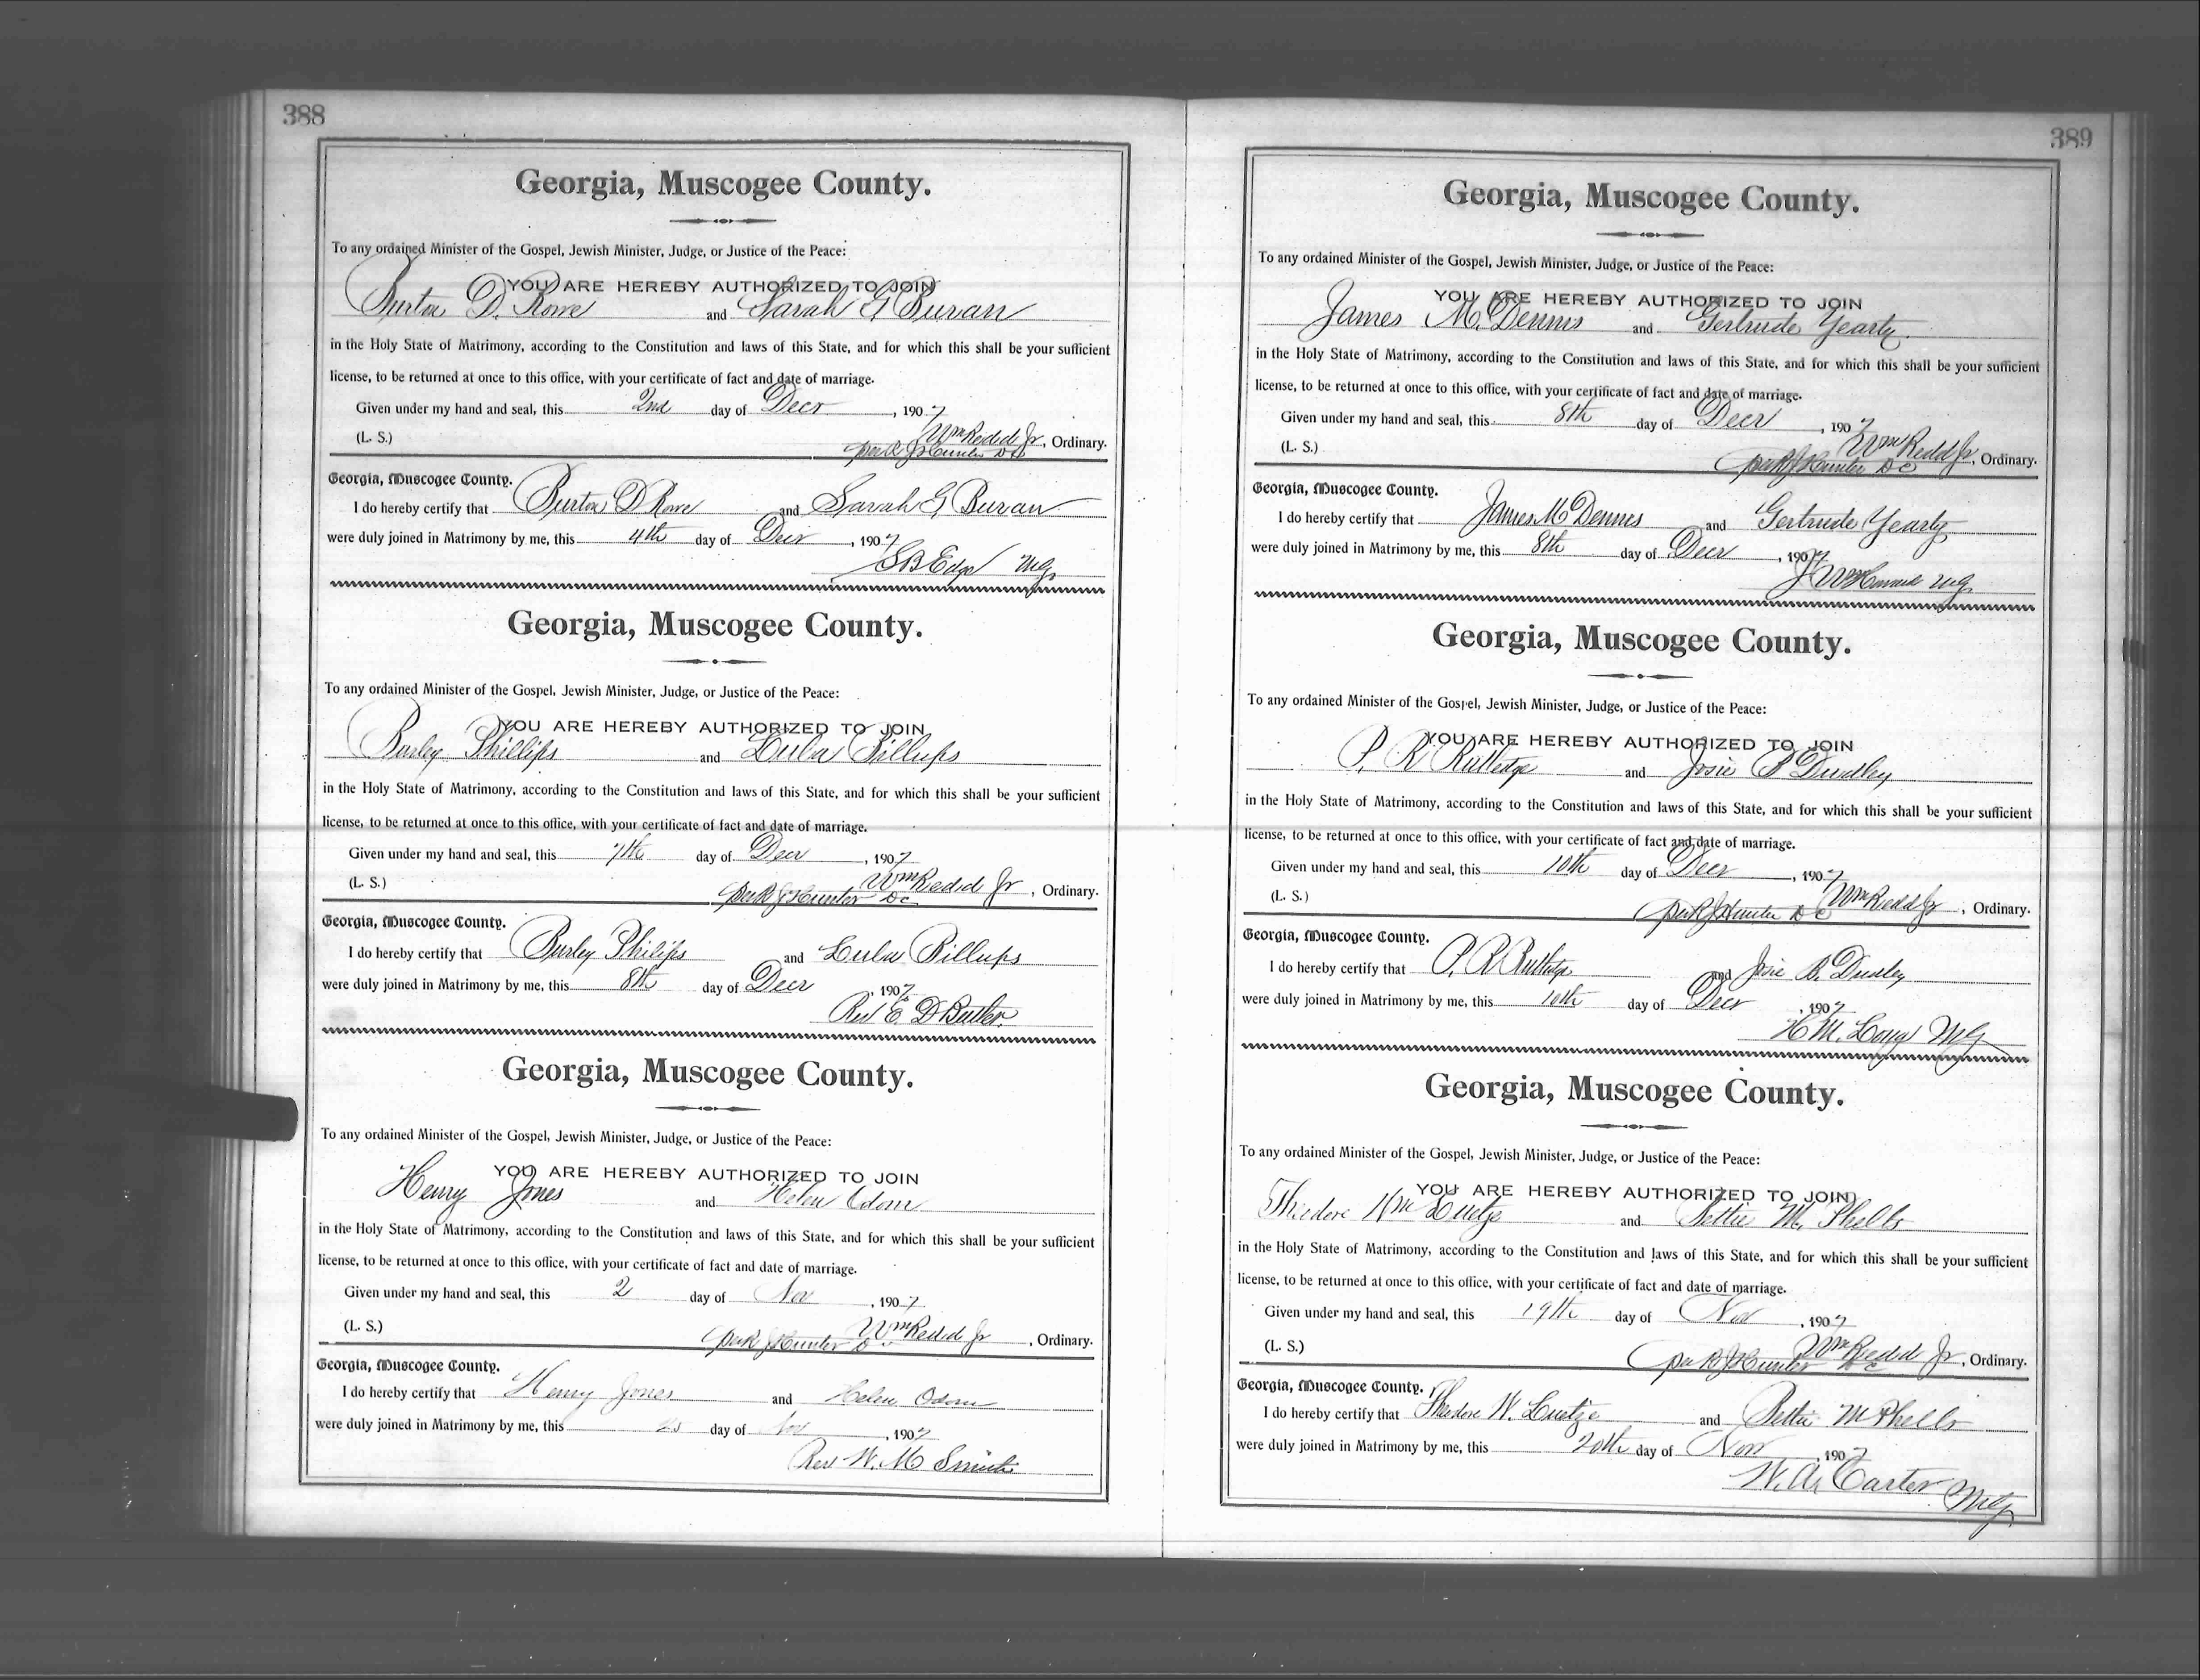 388
Georgia, Muscogee County.
To any ordained Minister of the Gospel, Jewish Minister, Judge, or Justice of the Peace:
YOU ARE HEREBY AUTHORIZED TO JOIN
Burton D. Rowe and Sarah G Buran
in the Holy State of Matrimony, according to the Constitution and laws of this State, and for which this shall be your sufficient
license, to be returned at once to this office, with your certificate of fact and date of marriage.
Given under my hand and seal, this 2nd day of Decr, 1907
(L. S.) Wm Redd Jr, Ordinary.
per R J Hunter DC
Georgia, Muscogee County.
I do hereby certify that Burton D Rowe and Sarah G Buran
were duly joined in Matrimony by me, this 4th day of Decr, 1907
S B Edge MG
Georgia, Muscogee County.
To any ordained Minister of the Gospel, Jewish Minister, Judge, or Justice of the Peace:
YOU ARE HEREBY AUTHORIZED TO JOIN
Burley Phillips and Lula Billups
in the Holy State of Matrimony, according to the Constitution and laws of this State, and for which this shall be your sufficient
license, to be returned at once to this office, with your certificate of fact and date of marriage.
Given under my hand and seal, this 7th day of Decr, 1907
(L. S.) Wm Redd Jr, Ordinary.
per R J Hunter DC
Georgia, Muscogee County.
I do hereby certify that Burley Philips and Lula Billups
were duly joined in Matrimony by me, this 8th day of Decr, 1907
Rev E. D Butler.
Georgia, Muscogee County.
To any ordained Minister of the Gospel, Jewish Minister, Judge, or Justice of the Peace:
YOU ARE HEREBY AUTHORIZED TO JOIN
Henry Jones and Helen Odom
in the Holy State of Matrimony, according to the Constitution and laws of this State, and for which this shall be your sufficient
license, to be returned at once to this office, with your certificate of fact and date of marriage.
Given under my hand and seal, this 2 day of Nov, 1907
(L. S.) Wm Redd Jr, Ordinary.
per R J Hunter DC
Georgia, Muscogee County.
I do hereby certify that Henry Jones and Helen Odom
were duly joined in Matrimony by me, this day of Nov, 1907
Rev W. M Smith
389
Georgia, Muscogee County.
To any ordained Minister of the Gospel, Jewish Minister, Judge, or Justice of the Peace:
YOU ARE HEREBY AUTHORIZED TO JOIN
James M. Dennis and Gertrude Yearty
in the Holy State of Matrimony, according to the Constitution and laws of this State, and for which this shall be your sufficient
license, to be returned at once to this office, with your certificate of fact and date of marriage.
Given under my hand and seal, this 8th day of Decr, 1907
(L. S.) Wm Redd Jr, Ordinary.
per R J Hunter DC
Georgia, Muscogee County.
I do hereby certify that James M Dennis and Gertrude Yearty
were duly joined in Matrimony by me, this 8th day of Decr, 1907
MG
Georgia, Muscogee County.
To any ordained Minister of the Gospel, Jewish Minister, Judge, or Justice of the Peace:
YOU ARE HEREBY AUTHORIZED TO JOIN
P. R Rutledge and Josie B Dudley
in the Holy State of Matrimony, according to the Constitution and laws of this State, and for which this shall be your sufficient
license, to be returned at once to this office, with your certificate of fact and date of marriage.
Given under my hand and seal, this 10th day of Decr, 1907
(L. S.) Wm Redd Jr, Ordinary.
per R J Hunter DC
Georgia, Muscogee County.
I do hereby certify that P. R Rutledge and Josie B. Dudley
were duly joined in Matrimony by me, this 10th day of Decr, 1907
H M. Long MG
Georgia, Muscogee County.
To any ordained Minister of the Gospel, Jewish Minister, Judge, or Justice of the Peace:
YOU ARE HEREBY AUTHORIZED TO JOIN
Theodore Wm Luetze and Bettie M. Phelts
in the Holy State of Matrimony, according to the Constitution and laws of this State, and for which this shall be your sufficient
license, to be returned at once to this office, with your certificate of fact and date of marriage.
Given under my hand and seal, this 19th day of Nov, 1907
(L. S.) Wm Redd Jr, Ordinary.
per R J Hunter DC
Georgia, Muscogee County.
I do hereby certify that Theodore W. Luetze and Bettie M Phelts
were duly joined in Matrimony by me, this 20th day of Nov, 1907
W. A. Carter MG